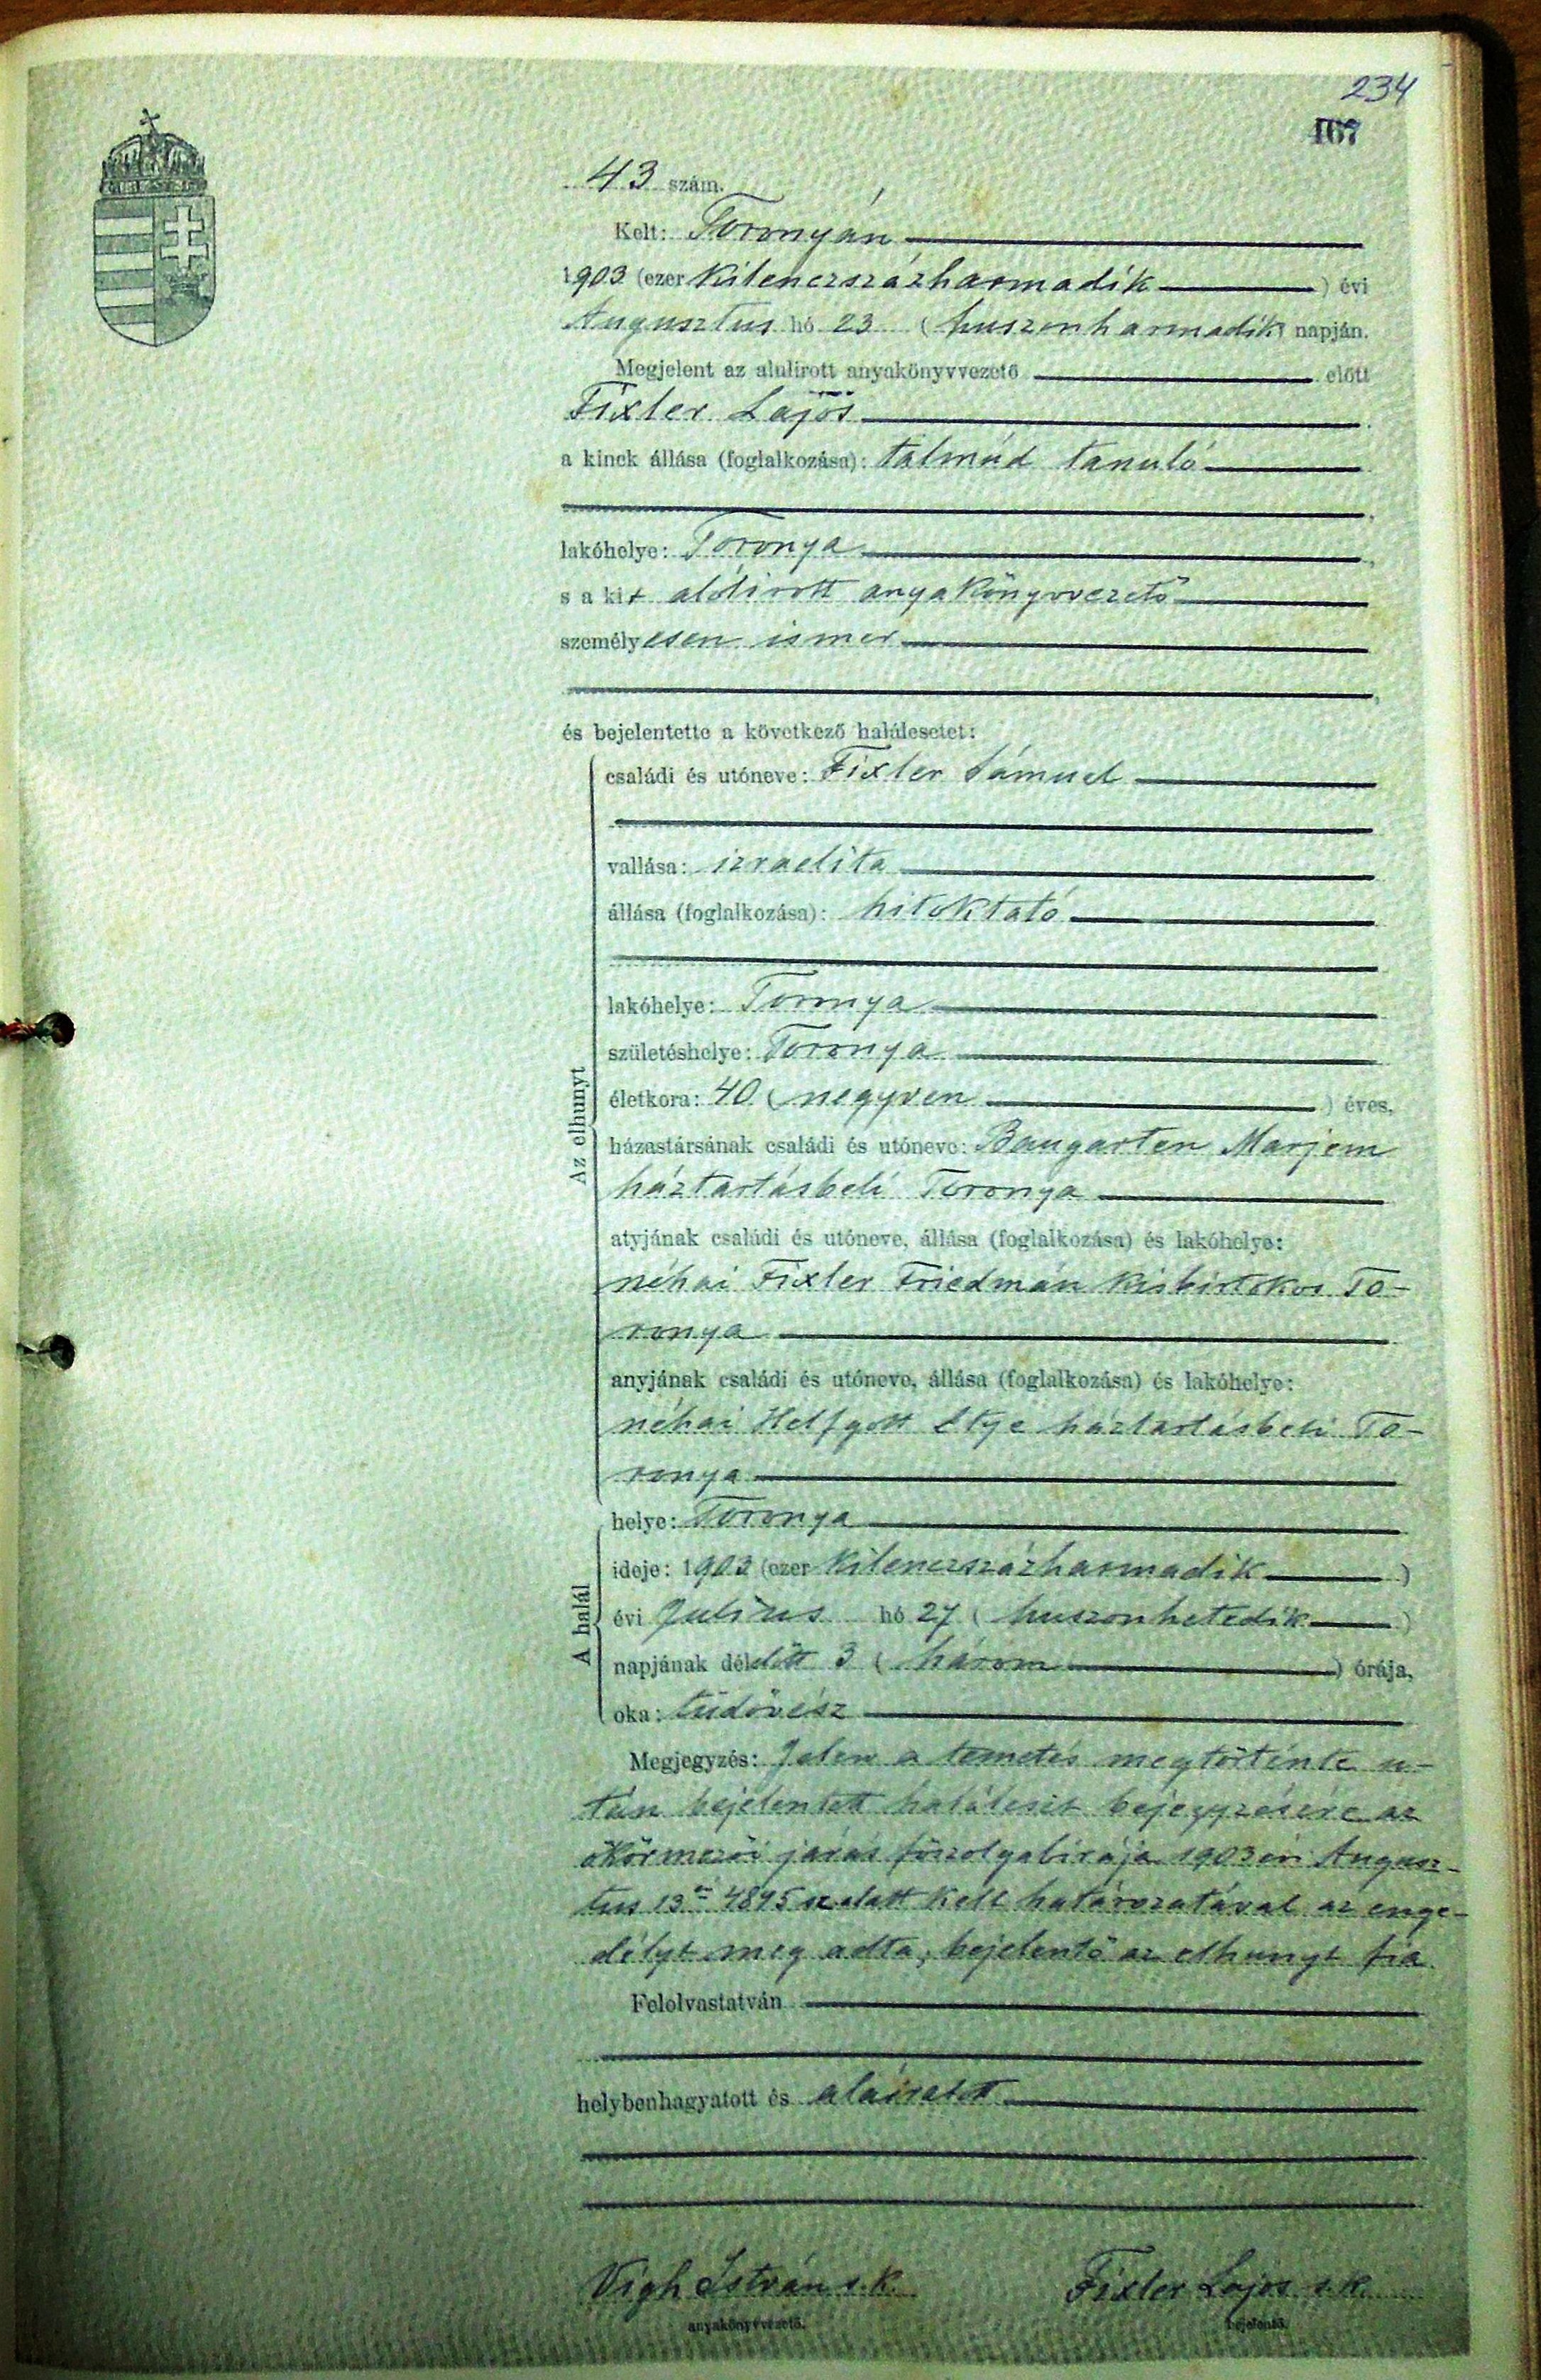 234
167
43 szám.
Kelt: Toronyán
1903 (ezer kilenczszázharmadik) évi
Augusztus hó 23 (huszonharmadik) napján.
Megjelent az alulirott anyakönyvvezető előtt
Fixler Lajos
a kinek állása (foglalkozása): talmúd tanuló
lakóhelye: Toronya
s a kit alólirott anyakönyvvezető
személyesen ismer
és bejelentette a következő halálesetet:
Az elhunyt
családi és utóneve: Fixler Sámuel
vallása: izraelita
állása (foglalkozása): hitoktató
lakóhelye: Toronya
születéshelye: Toronya
életkora: 40 (negyven) éves,
házastársának családi és utóneve: Baugarten Marjem
háztartásbeli Toronya
atyjának családi és utóneve, állása (foglalkozása) és lakóhelye:
néhai Fixler Friedmán kisbirtokos To-
ronya
anyjának családi és utóneve, állása (foglalkozása) és lakóhelye:
néhai Helfgott Etye háztartásbeli To-
ronya
A halál
helye: Toronya
ideje: 1903 (ezer kilenczszázharmadik)
évi Julius hó 27 (huszonhetedik)
napjának délelőtt 3 (három) órája,
oka: tüdővész
Megjegyzés: Jelen a temetés megtörténte u-
tán bejelentett haláleset bejegyzésére az
ökörmezői járás főszolgabirája 1903 évi Augusz-
tus 13án 4895 sz. alatt kelt határozatával az enge-
délyt meg adta, bejelentő az elhunyt fia
Felolvastatván
helybenhagyatott és aláiratott
Vigh István s.k. Fixler Lajos s.k.
anyakönyvvezető. bejelentő.